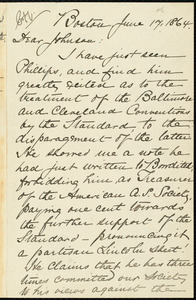 Boston June 17, 1864
Dear Johnson:
I have just seen
Phillips, and find him
greatly excited as to the
treatment of the Baltimore
and Cleveland Conventions
by the Standard to the
disparagement of the latter.
He showed me a note he
had just written to
forbidding him as Treasurer
of the American A.S. Society,
paying one cent towards
the further support of the
Standard – pronouncing it
a partisan Lincoln Sheet.
He claims that he has three
times committed our Society
to his views against the